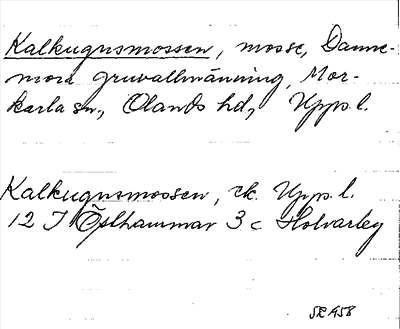 Kalkugnsmossen, mosse, Danne-
mora gruvallmänning, Mor-
karla sn, Olands hd, Upps. l.
Kalkugnsmossen, ek. Upps. l.
12 I Östhammar 3 c Holvarby